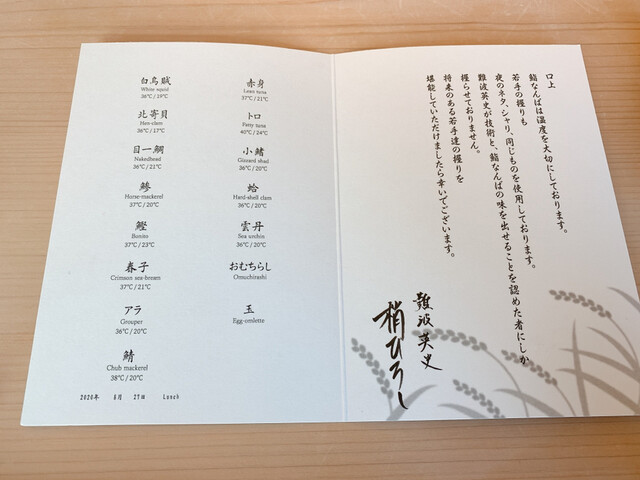 白烏賊
White squid
36℃ / 19℃
北寄貝
Hen-clam
38℃ / 17℃
目一鯛
Nakedhead
36℃ / 21℃
鯵
Horse-mackerel
37℃ / 20℃
鰹
Bonito
37℃ / 23℃
春子
Crimson sea-bream
37℃ / 21℃
アラ
Grouper
36℃ / 20℃
鯖
Chub mackerel
38℃ / 20℃
赤身
Lean tuna
37℃ / 21℃
トロ
Fatty tuna
40℃ / 24℃
小鰭
Gizzard shad
36℃ / 20℃
蛤
Hard-shell clam
36℃ / 20℃
雲丹
Sea urchin
36℃ / 20℃
おむちらし
Omuchirashi
玉
Egg-omlette
2020年 8月 27日 Lunch
口上
鮨なんばは温度を大切にしております。
若手の握りも
夜のネタ、シャリ、同じものを使用しております。
難波英史が技術と、鮨なんばの味を出せることを認めた者にしか
握らせておりません。
将来のある若手達の握りを
堪能していただけましたら幸いでございます。
難波英史
梢ひろし